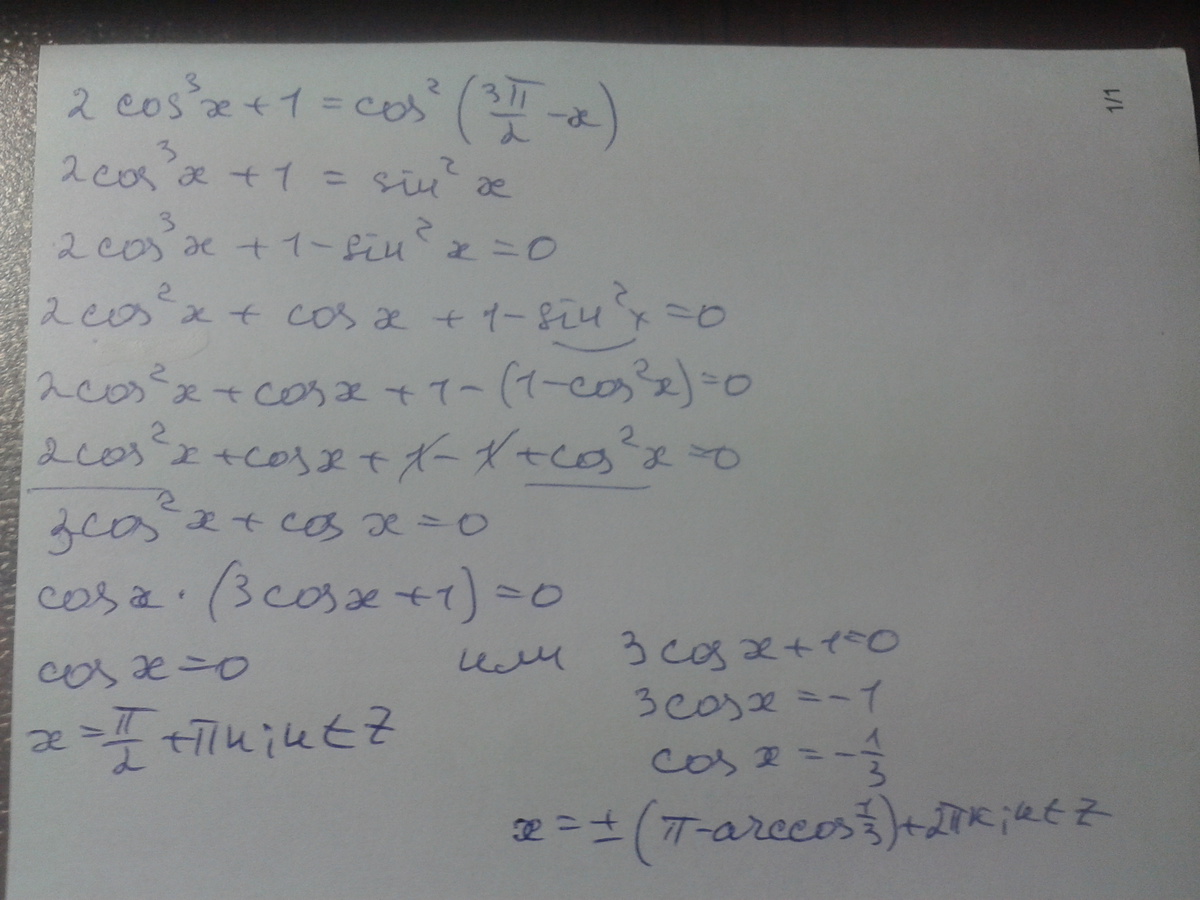 1/1
2 cos³x + 1 = cos² (3π/2 − x)
2cos³x + 1 = sin² x
2cos³x + 1 − sin² x = 0
2cos²x + cosx + 1 − sin²x = 0
2cos²x + cosx + 1 − (1 − cos²x) = 0
2cos²x + cosx + 1 − 1 + cos²x = 0
3cos²x + cos x = 0
cosx · (3cosx + 1) = 0
cosx = 0 или 3cosx + 1 = 0
3cosx = −1
x = π/2 + πк; к ∈ Z
cosx = −1/3
x = ± (π − arccos 1/3) + 2πк; к ∈ Z